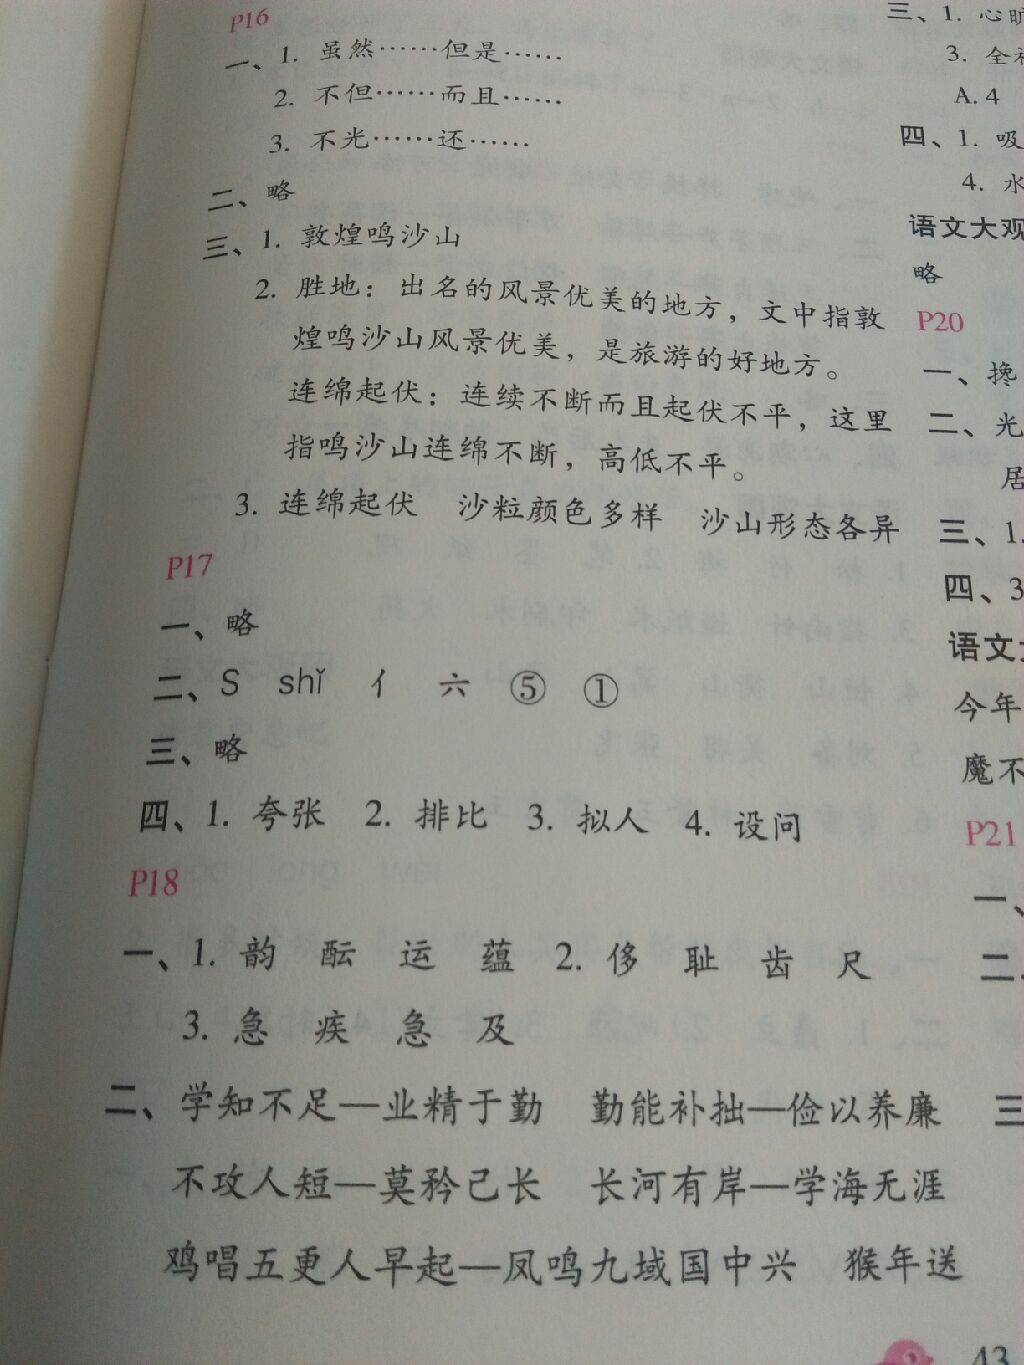 P16
一、1. 虽然……但是……
2. 不但……而且……
3. 不光……还……
二、略
三、1. 敦煌鸣沙山
2. 胜地：出名的风景优美的地方，文中指敦
煌鸣沙山风景优美，是旅游的好地方。
连绵起伏：连续不断而且起伏不平，这里
指鸣沙山连绵不断，高低不平。
3. 连绵起伏 沙粒颜色多样 沙山形态各异
P17
一、略
二、S shǐ 亻 六 ⑤ ①
三、略
四、1. 夸张 2. 排比 3. 拟人 4. 设问
P18
一、1. 韵 酝 运 蕴 2. 侈 耻 齿 尺
3. 急 疾 急 及
二、学知不足—业精于勤 勤能补拙—俭以养廉
不攻人短—莫矜己长 长河有岸—学海无涯
鸡唱五更人早起—凤鸣九域国中兴 猴年送
三、1. 心旷
3. 全神
A. 4
四、1. 吸
4. 水
语文大观
略
P20
一、搀
二、光
居
三、1.
四、3
语文大
今年
魔不
P21
一、
二、
三
43